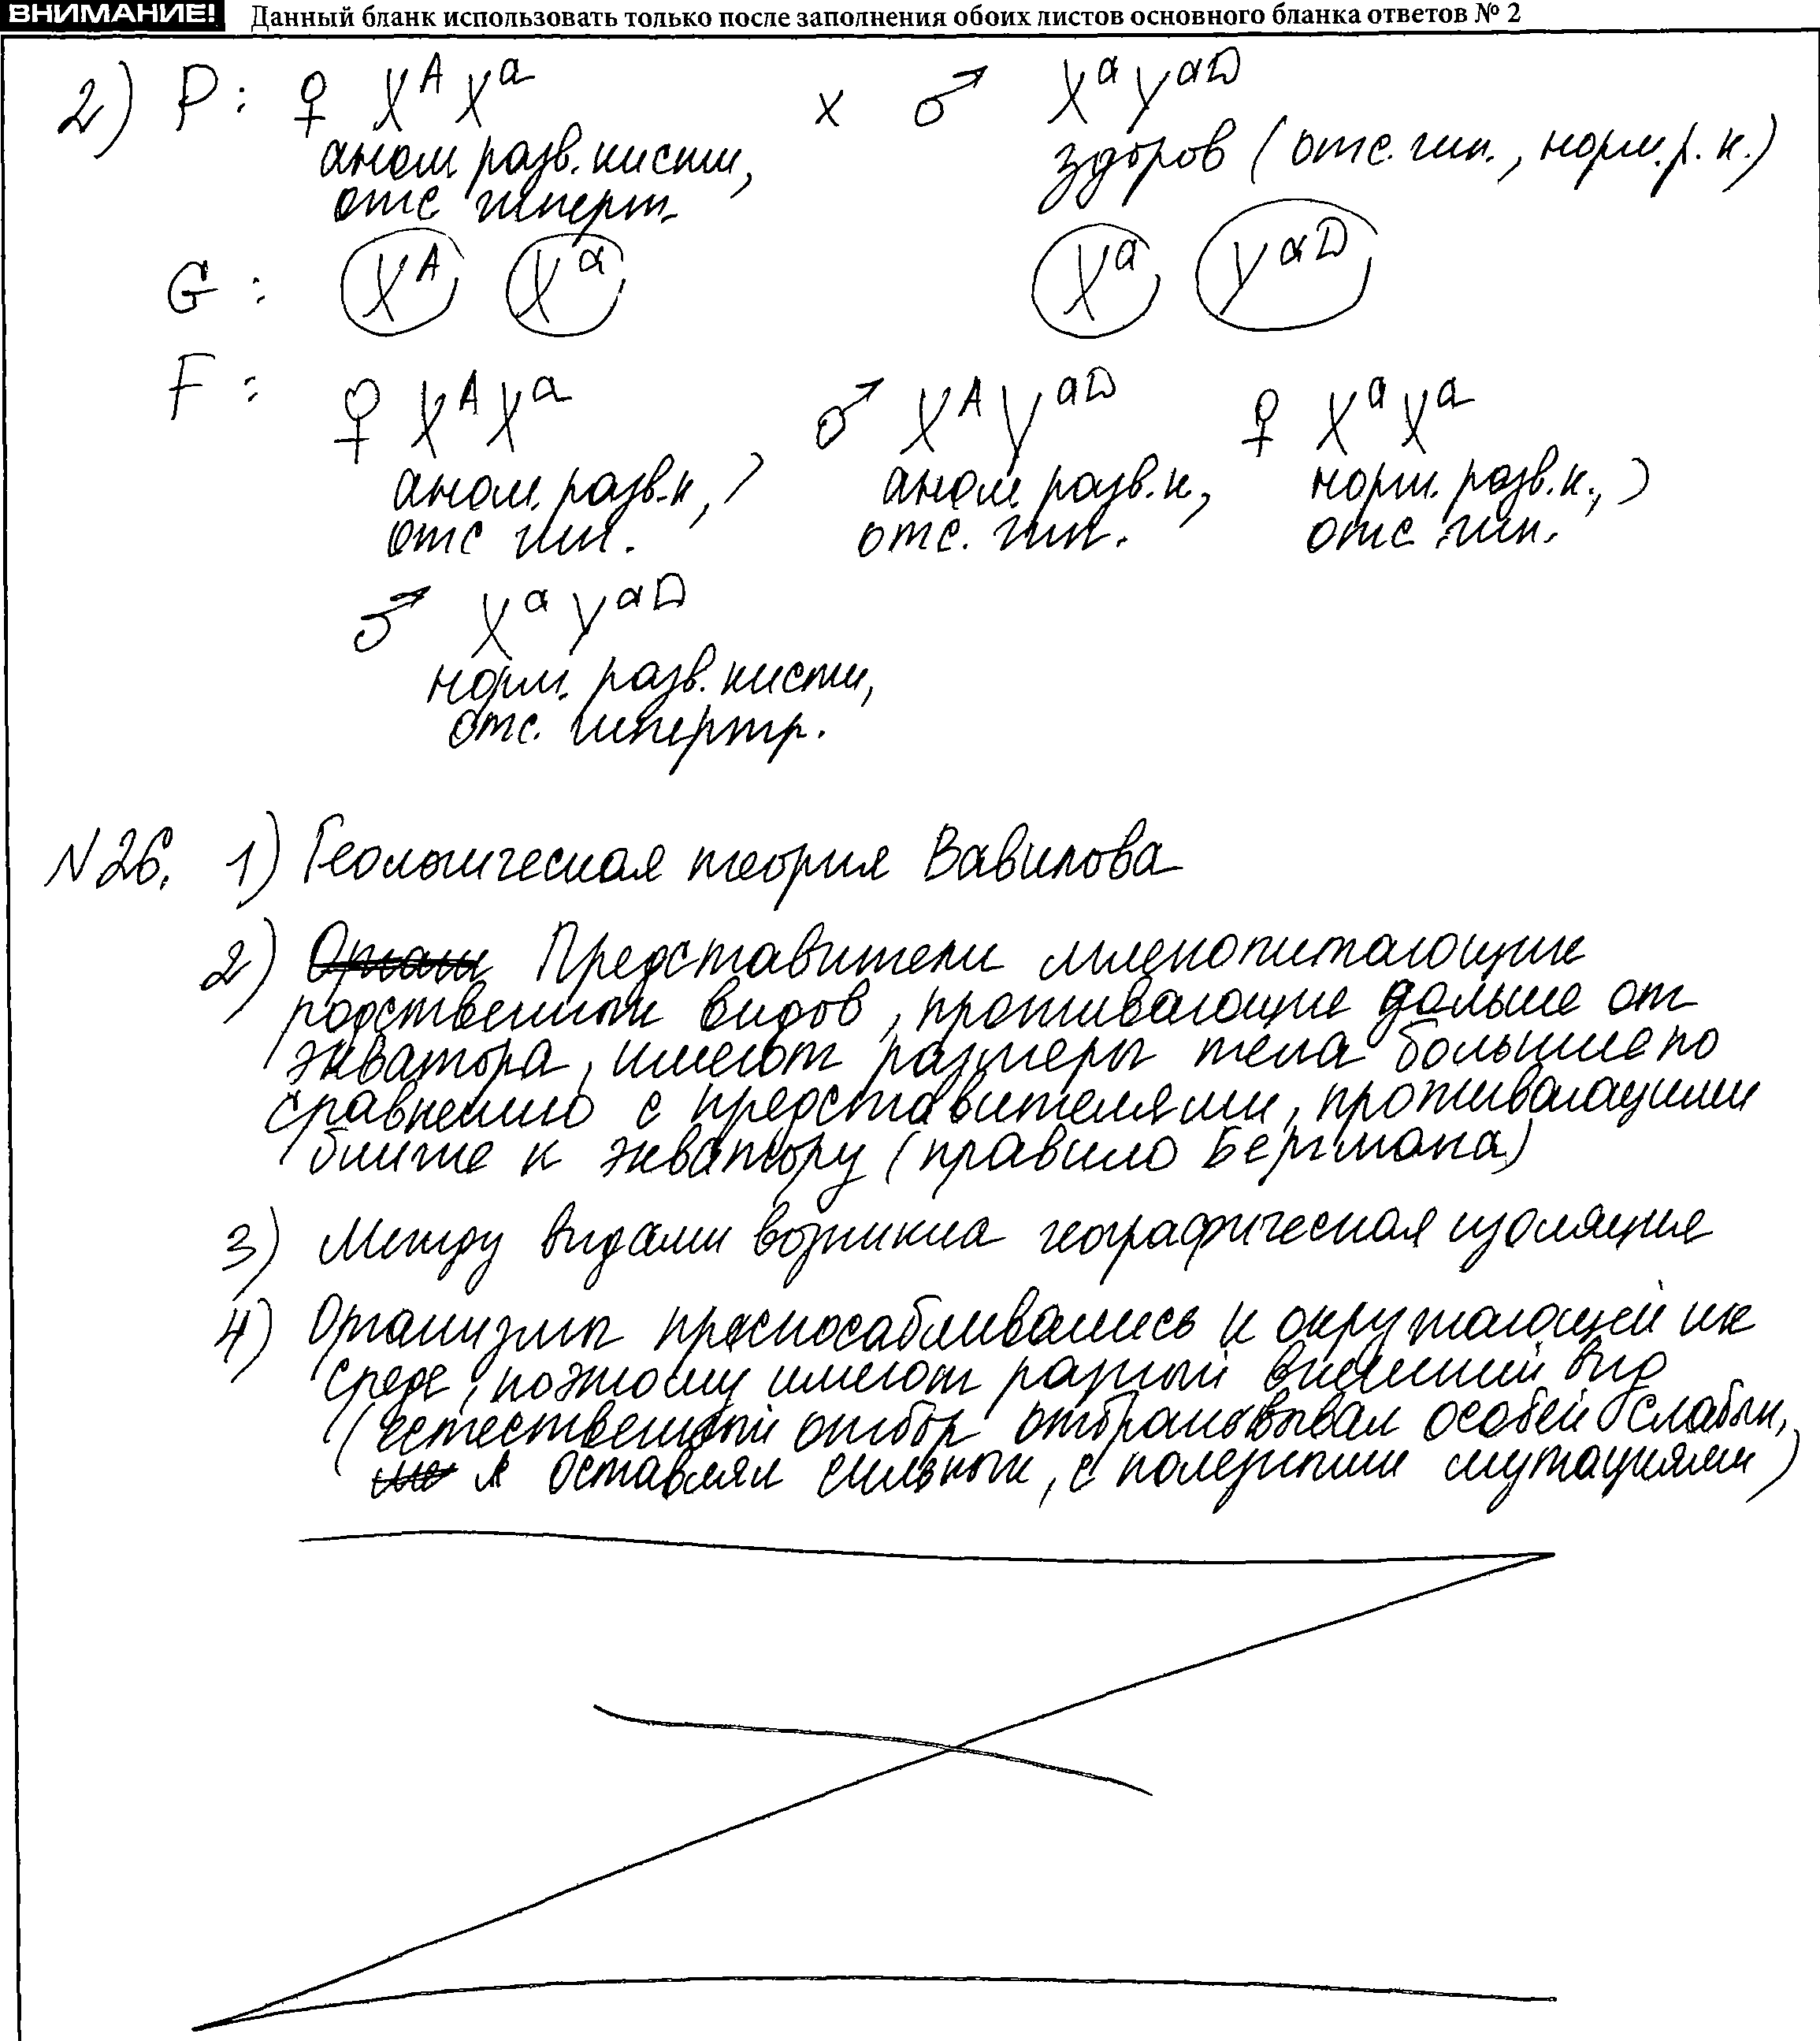 ВНИМАНИЕ! Данный бланк использовать только после заполнения обоих листов основного бланка ответов № 2
2) P: ♀ X^A X^a x ♂ X^a Y^aD
аном. разв. кисти, здоров (отс. гип., норм. р. к.)
отс гиперт.
G: X^A X^a X^a Y^aD
F: ♀ X^A X^a ♂ X^A Y^aD ♀ X^a X^a
аном. разв. к, аном. разв. к, норм. разв. к.,
отс гип. отс. гип. отс гип.
♂ X^a Y^aD
норм. разв. кисти,
отс. гипертр.
N26. 1) Геологическая теория Вавилова
2) Представители млекопитающих
родственных видов, проживающие дальше от
экватора, имеют размеры тела большие по
сравнению с представителями, проживающими
ближе к экватору (правило Бергмана)
3) Между видами возникла географическая изоляция
4) Организмы приспосабливались к окружающей их
среде, поэтому имеют разный внешний вид
(естественный отбор отбраковывал особей слабых,
и оставлял сильных, с полезными мутациями)